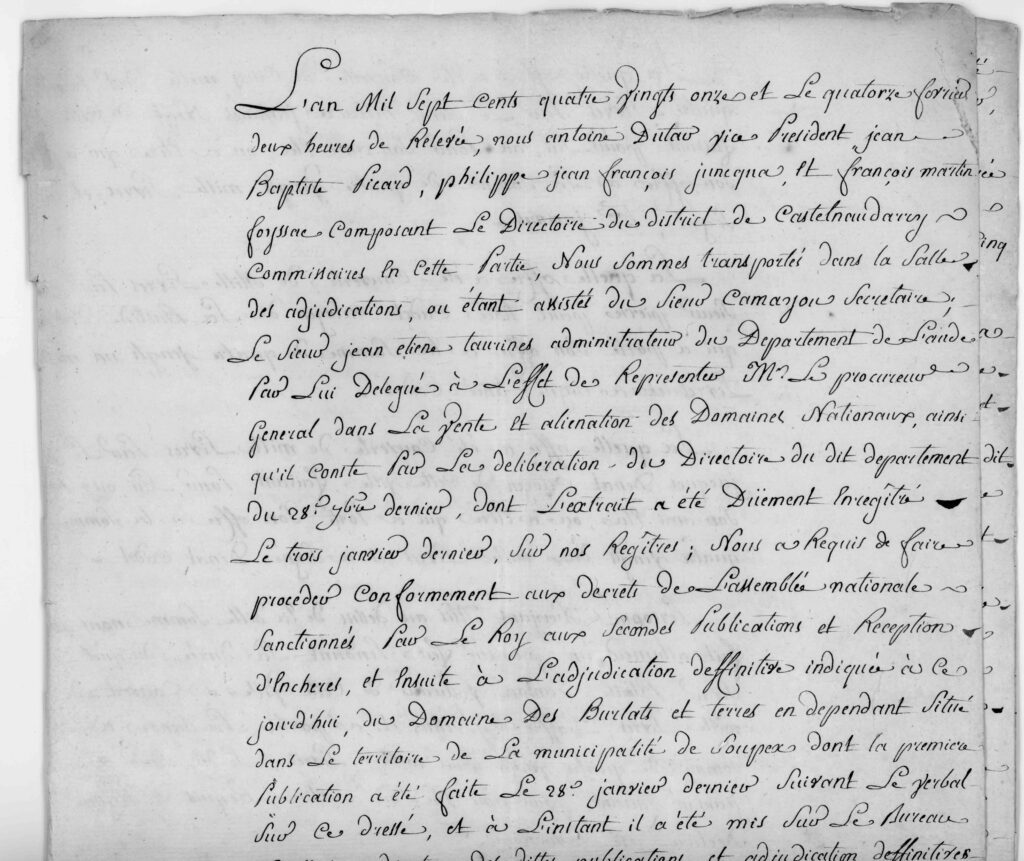 L'an Mil Sept Cents quatre Vingts onze et Le quatorze fevrier
deux heures de Relevée, nous antoine Dutau vice President jean
Baptiste Picard, philippe jean françois juncqua, Et françois martin
foyssac Composant Le Directoire du district de Castelnaudarry
Commissaires En Cette Partie, Nous Sommes transportés dans la Salle
des adjudications, ou étant assistés du Sieur Camayou Secretaire,
Le Sieur jean etiene taurines administrateur du Departement de L'aude
Par Lui Delegué à L'effet de Representer Mr. Le procureur
General dans La Vente et alienation des Domaines Nationaux, ainsi
qu'il conste Par La deliberation du Directoire du dit departement
du 28e. 9bre dernier, dont L'extrait a été Düement Enregîtré
Le trois janvier dernier, Sur nos Regîtres; Nous a Requis de faire
proceder Conformement aux decrets de L'assemblée nationale
Sanctionnés Par Le Roy aux Secondes Publications et Reception
d'Encheres, et Ensuite à L'adjudication deffinitive indiquée à ce
jourd'hui, du Domaine Des Burlats et terres en dependant Situé
dans Le territoire de La municipalité de Soupex dont la premiere
Publication a été faite Le 28e. janvier dernier Suivant Le verbal
Sur ce dressé, et à L'instant il a été mis Sur Le Bureau
des dittes publications et adjudication deffinitives
ée
inq
dit